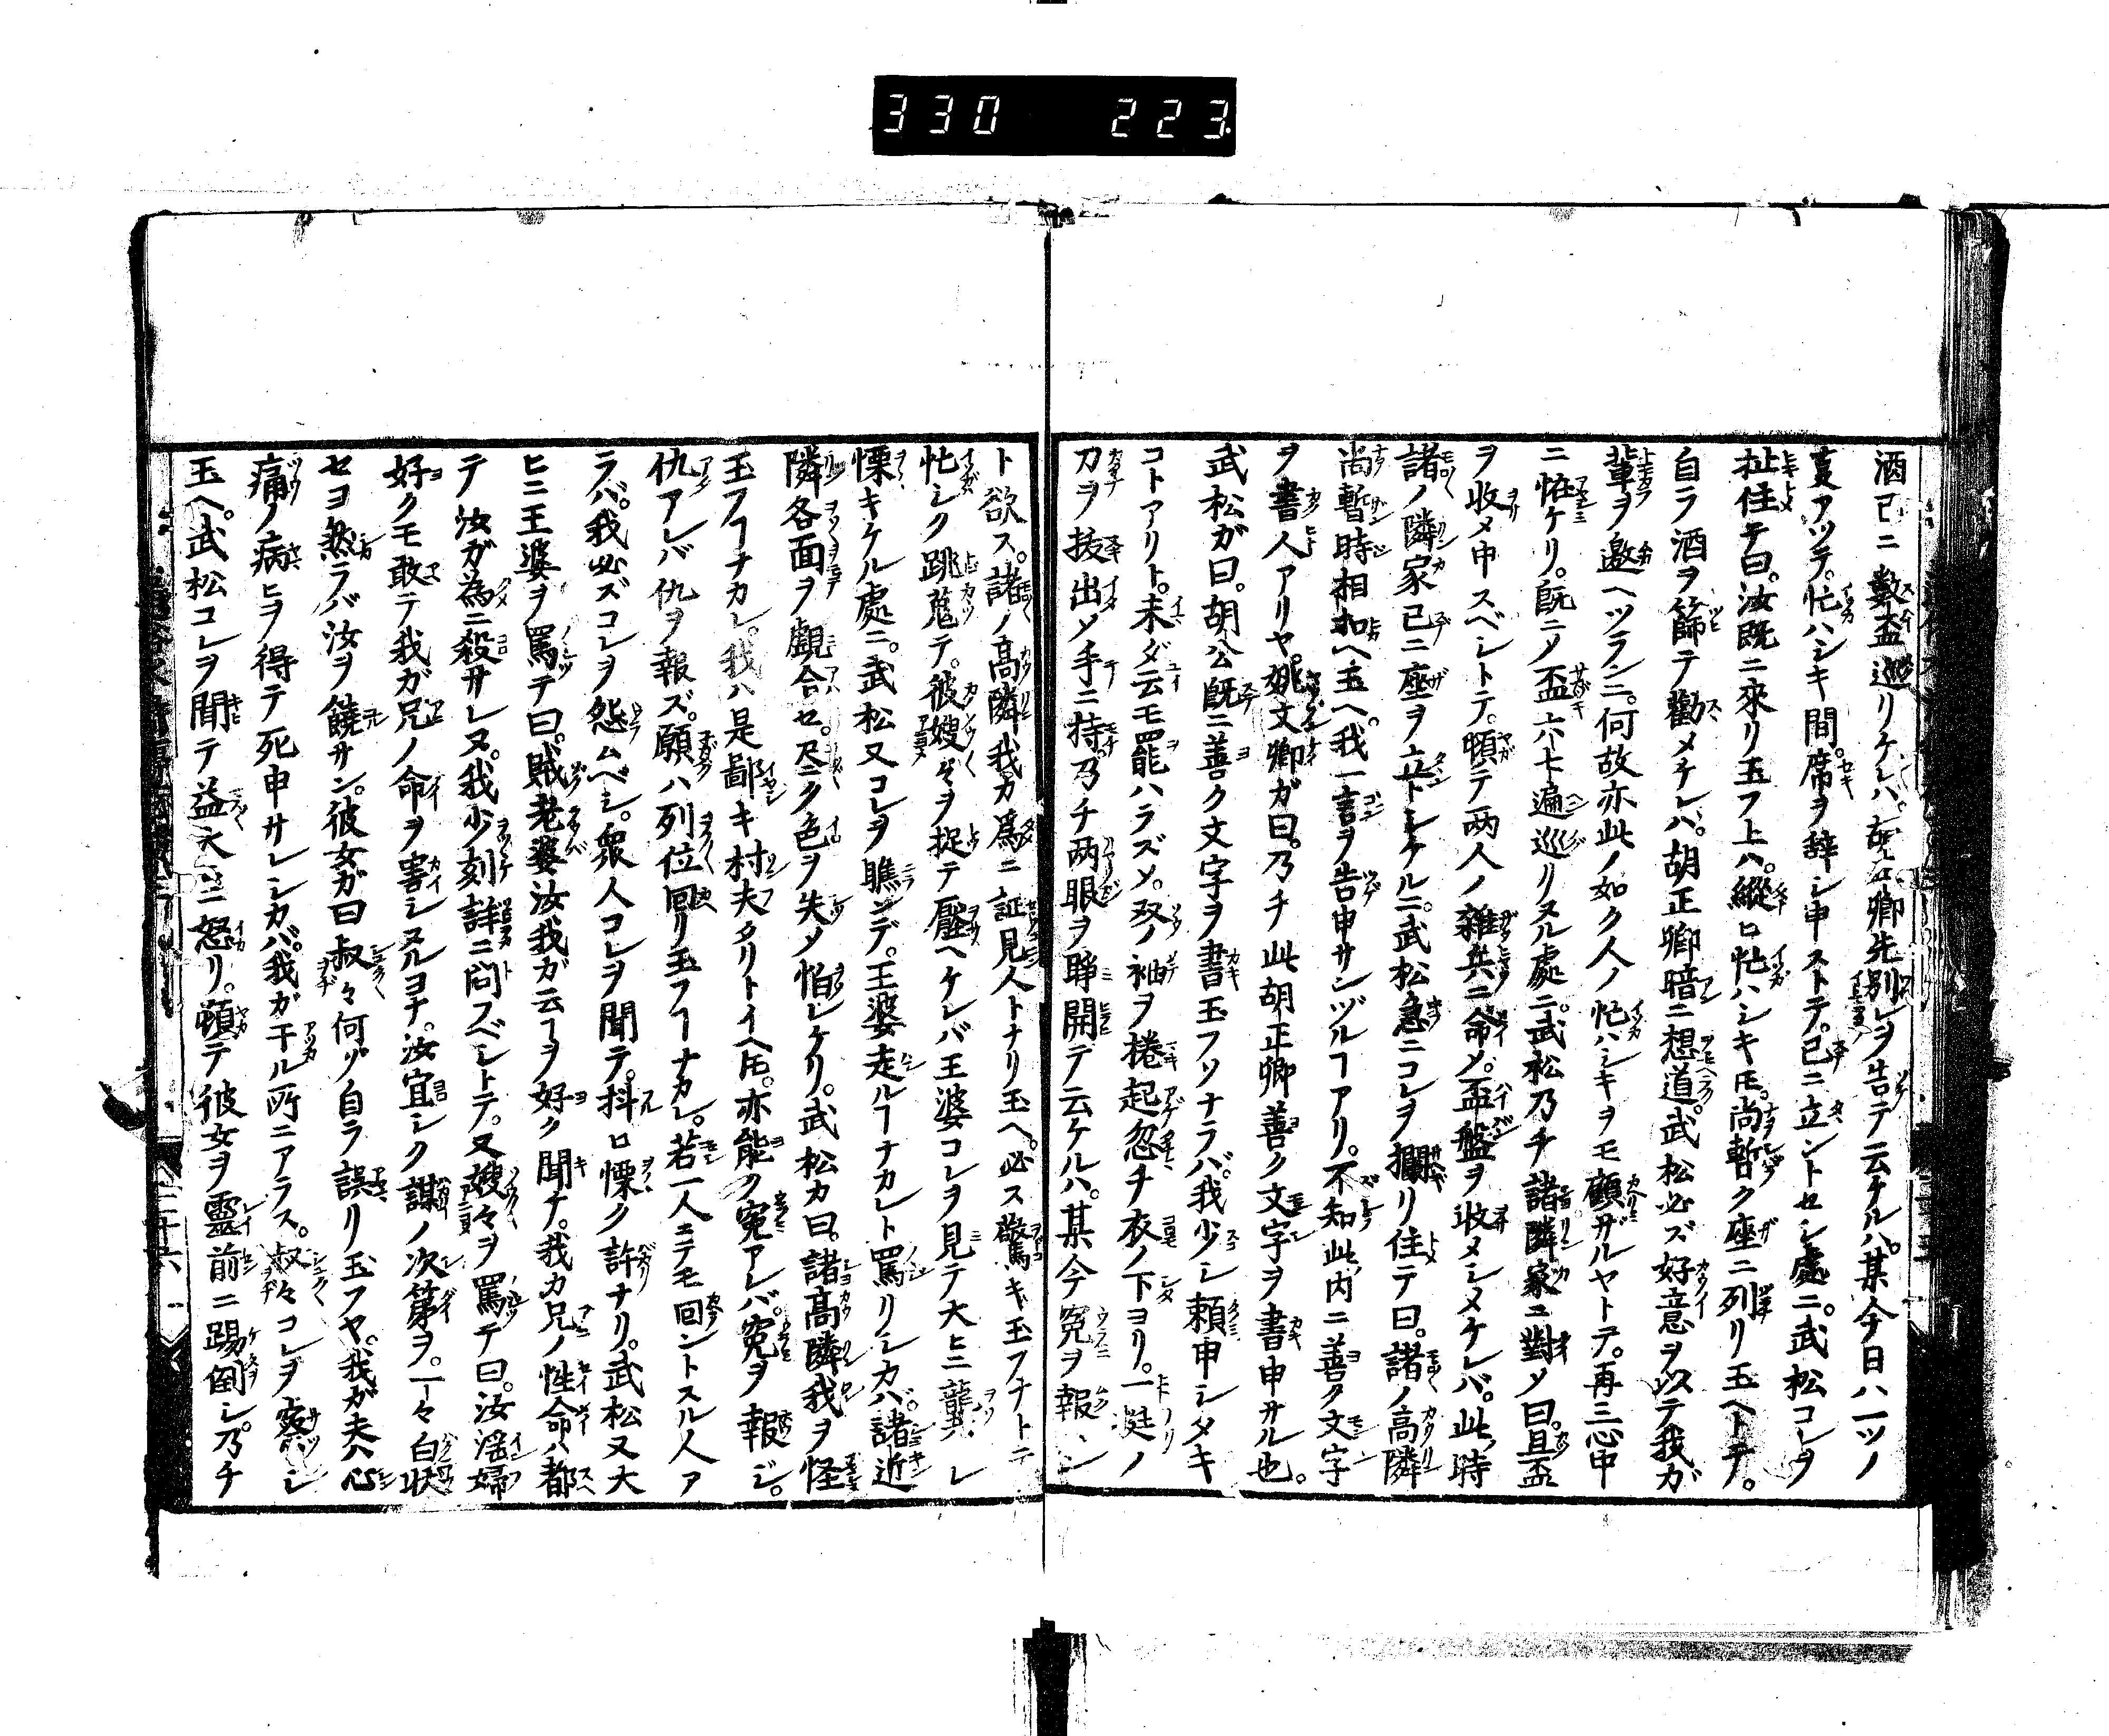 330 223
酒已ニ數盃巡リケレハ胡正卿先別レヲ告テ云ケルハ。某今日ハ一ツノ
夏アツテ。忙ハシキ間。席ヲ辞シ申ストテ。已ニ立ントセシ處ニ。武松コレヲ
扯住テ曰。汝既ニ來リ玉フ上ハ。縱ヒ忙ハシキ𪜈。尚暫ク座ニ列リ玉ヘトテ。
自ラ酒ヲ篩テ勸メケレハ。胡正卿暗ニ想道。武松必ズ好意ヲ以テ我ガ
輩ヲ邀ヘツランニ。何故亦此ノ如ク人ノ忙ハシキヲモ顧ザルヤトテ。再三心中
ニ恠ケリ。既ニ〆盃六七遍巡リヌル處ニ。武松乃チ諸隣家ニ對〆曰。且盃
ヲ收メ申スベシトテ。頓テ两人ノ雜兵ニ命〆。盃盤ヲ收メシメケレバ。此時
諸ノ隣家已ニ座ヲ立ントシケルニ。武松急ニコレヲ攔リ住テ曰。諸ノ高隣
尚暫時相扣ヘ玉ヘ。我一言ヲ告申サンヅルヿアリ。不知此内ニ善ク文字
ヲ書人アリヤ。姚文卿ガ曰。乃チ此胡正卿善ク文字ヲ書申サル也。
武松ガ曰。胡公既ニ善ク文字ヲ書玉フソナラバ。我少シ頼申シタキ
コトアリト。未ダ云モ罷ハラズ〆。雙ノ袖ヲ捲起忽チ衣ノ下ヨリ。一挺ノ
刀ヲ抜出〆手ニ持乃チ两眼ヲ睁開テ云ケルハ。某今寃ヲ報ン
ト欲ス。諸ノ高隣我カ爲ニ証見人トナリ玉ヘ。必ス驚キ玉フナトテ
忙シク跳蒐テ。彼嫂ゾヲ捉テ壓ヘケレバ王婆コレヲ見テ大ヒニ龔レ
慄キケル處ニ。武松又コレヲ瞧ンデ。王婆走ルヿナカレト罵リシカバ。諸近
隣各面ヲ覷合セ。尽ク色ヲ失〆怕レケリ。武松カ曰。諸高隣我ヲ怪
玉フヿナカレ。我ハ是鄙キ村夫タリトイヘ𪜈。亦能ク寃アレバ。寃ヲ報ジ。
仇アレバ仇ヲ報ズ。願ハ列位回リ玉フヿナカレ。若一人ニテモ回ントスル人ア
ラバ。我必ズコレヲ怨ムベシ。衆人コレヲ聞テ。抖ヒ慄ク許ナリ。武松又大
ヒニ王婆ヲ罵テ曰。賊老婆汝我ガ云ヿヲ好ク聞ケ。我カ兄ノ性命ハ都
テ汝ガ為ニ殺サレヌ。我少刻詳ニ問フベシトテ。又嫂々ヲ罵テ曰。汝淫婦
好クモ敢テ我ガ兄ノ命ヲ害シヌルヨナ。汝宜シク謀ノ次第ヲ。一々白狀
セヨ然ラバ汝ヲ饒サン。彼女ガ曰叔々何ゾ自ラ誤リ玉フヤ。我ガ夫ハ心
痛ノ病ヒヲ得テ死申サレシカバ。我ガ干ル所ニアラス。叔々コレヲ察シ
玉ヘ。武松コレヲ聞テ益大ニ怒リ。頓テ彼女ヲ靈前ニ踢倒シ。乃チ